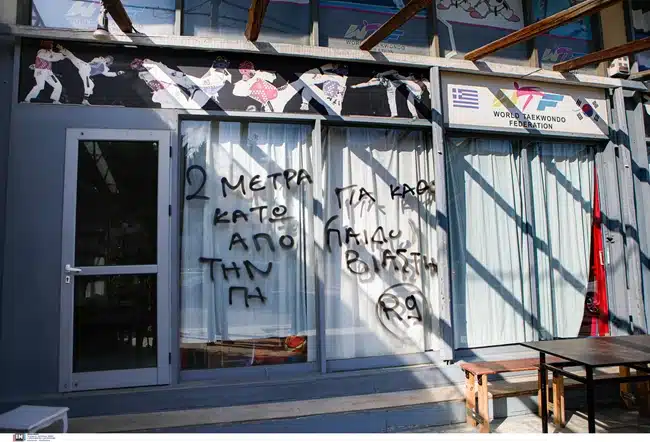 WORLD TAEKWONDO
FEDERATION
2 ΜΕΤΡΑ
ΚΑΤΩ
ΑΠΟ
ΤΗΝ
ΓΗ
ΓΙΑ ΚΑΘΕ
ΠΑΙΔΟ
ΒΙΑΣΤΗ
R9
IN